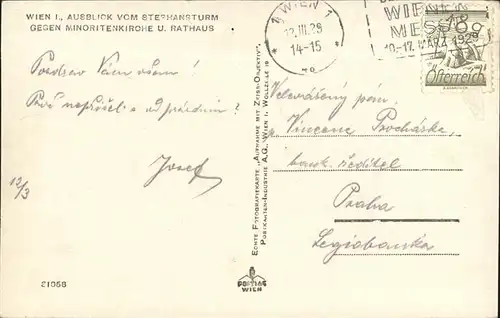 WIEN I., AUSBLICK VOM STEPHANSTURM
GEGEN MINORITENKIRCHE U. RATHAUS
Pozdrav Vám všem!
Proč nepřišel s odpovědí?
Josef
12/3
21056
1 WIEN 1
12.III.29
14-15
WIENER
MESSE
10.-17. MÄRZ 1929
Österreich
ECHTE FOTOGRAFIEKARTE „AUFNAHME MIT ZEISS-OBJEKTIV“
POSTKARTEN-INDUSTRIE A.G., WIEN I. WOLLZEILE 15
Velevážený pán,
Vincenc Procházka,
bank. ředitel
Praha
Legiobanka
POSTIAG
WIEN